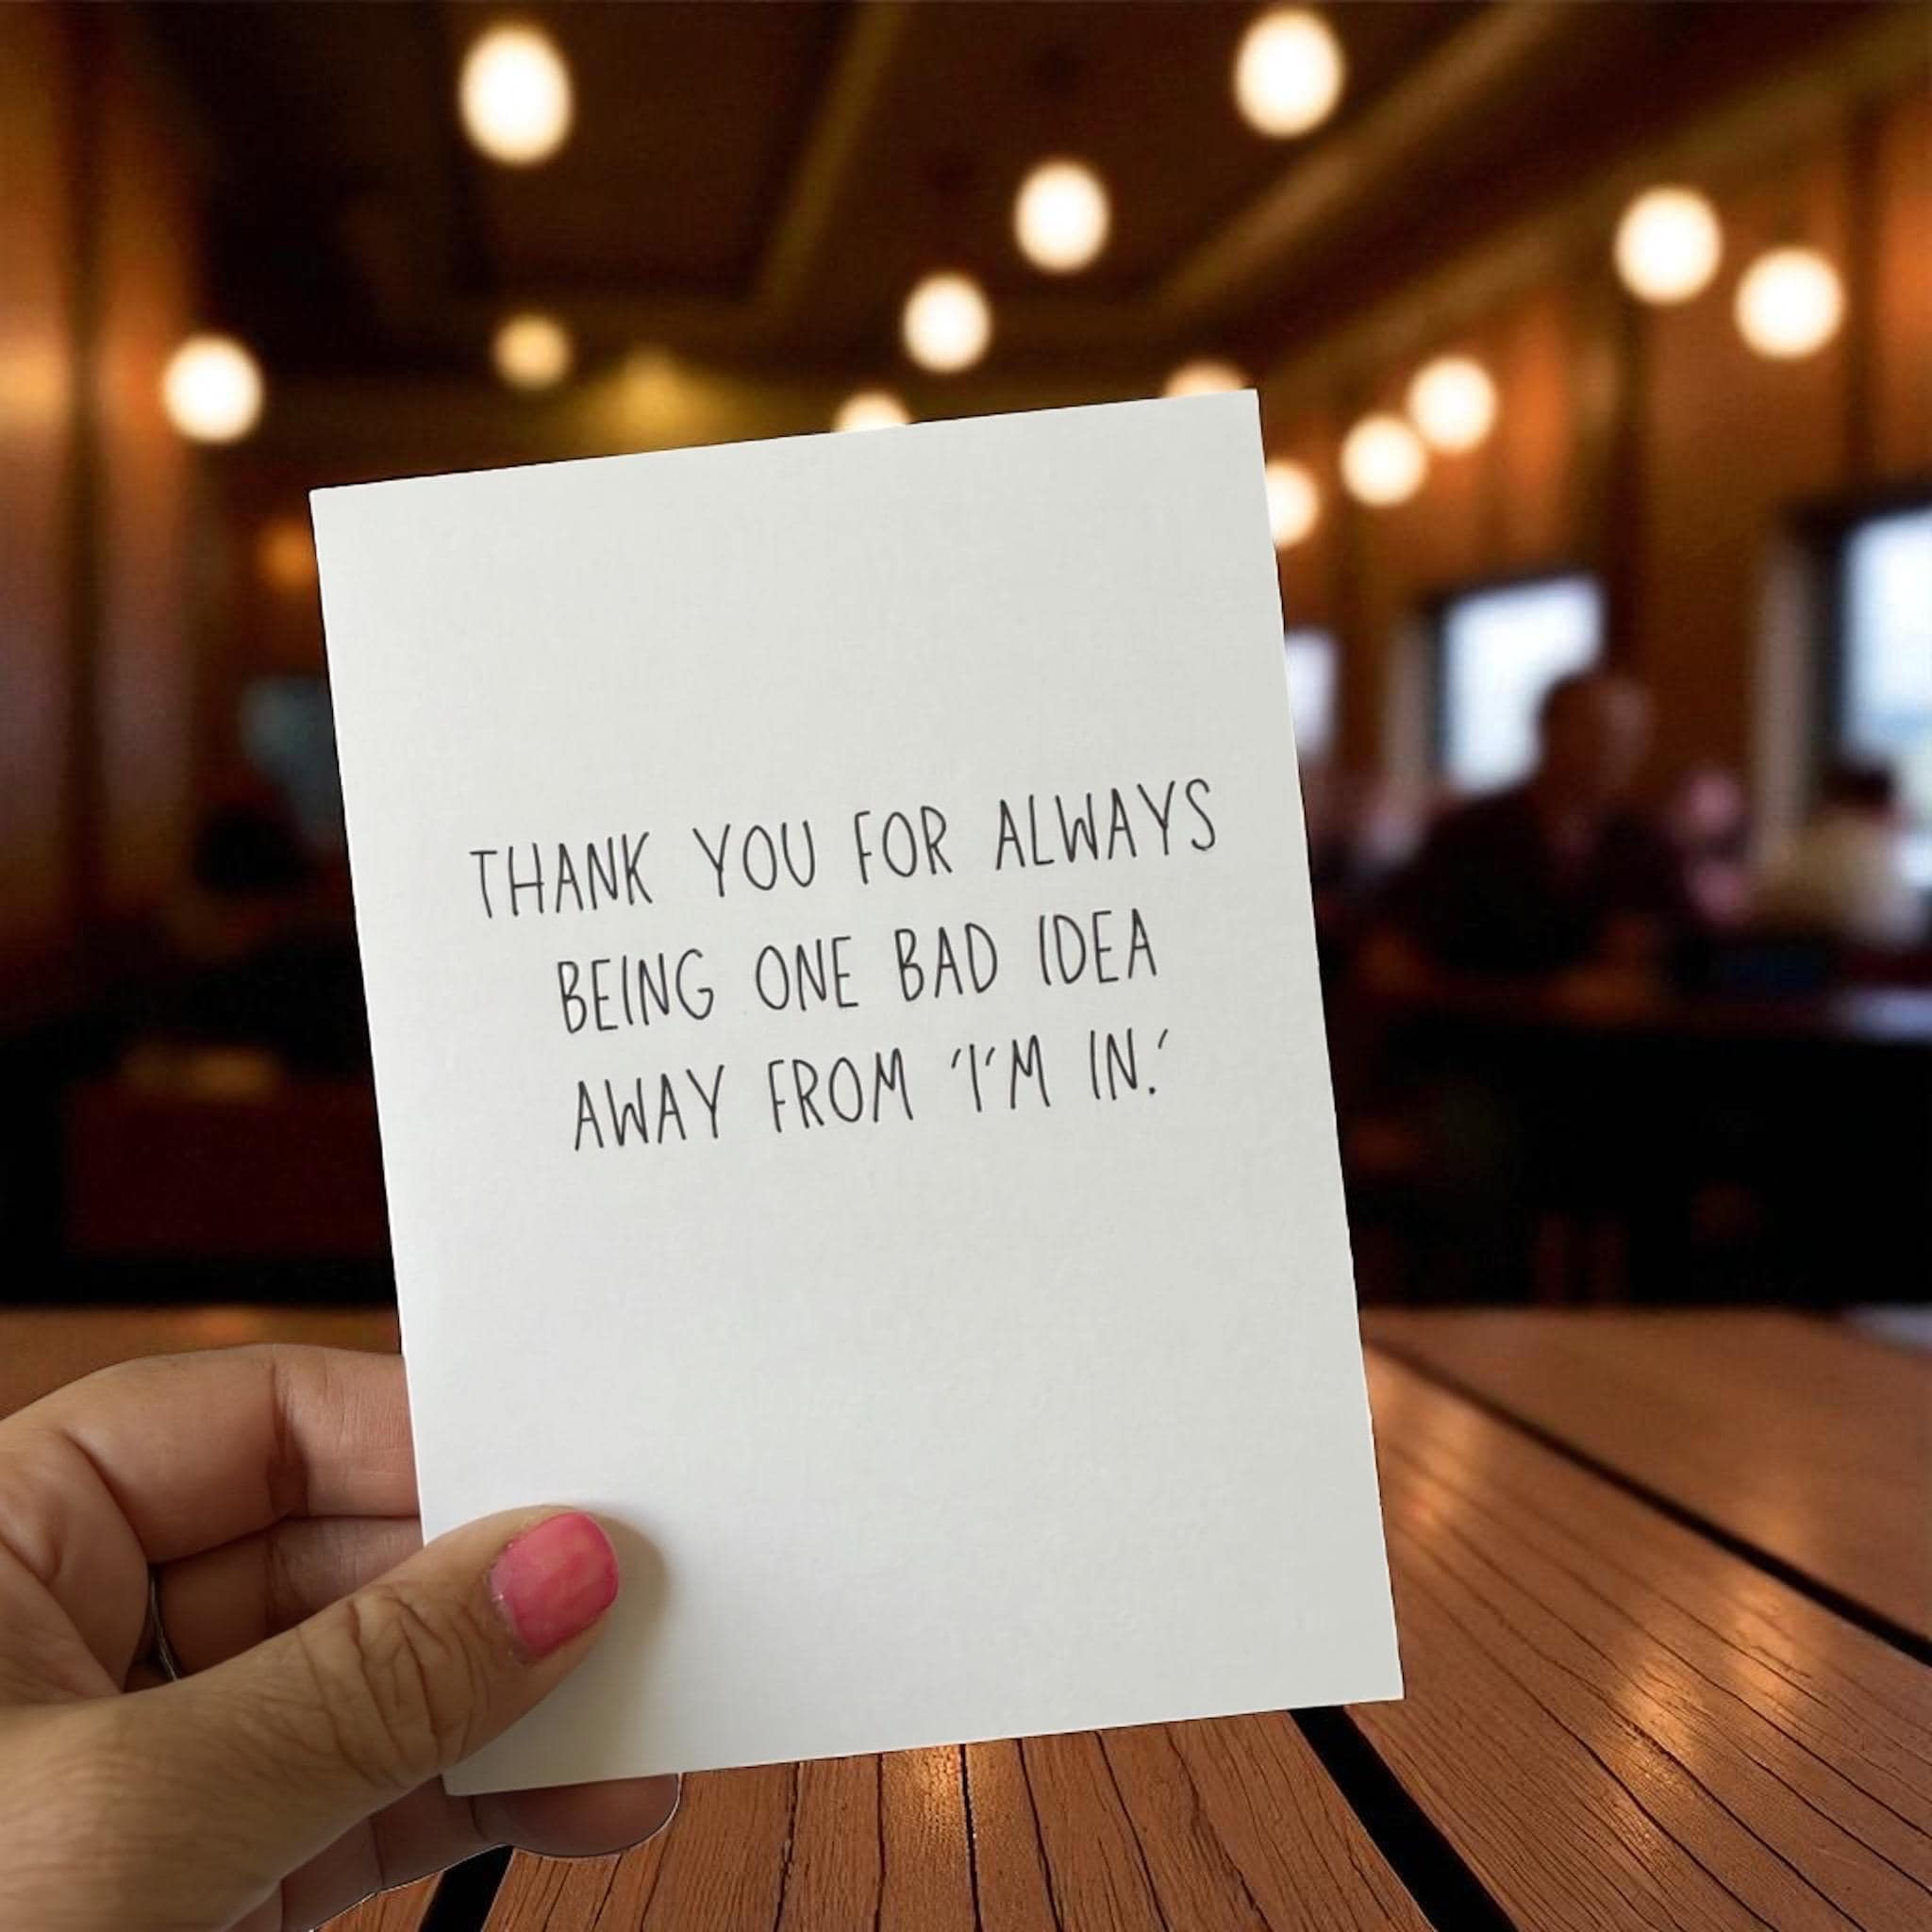 THANK YOU FOR ALWAYS
BEING ONE BAD IDEA
AWAY FROM 'I'M IN.'